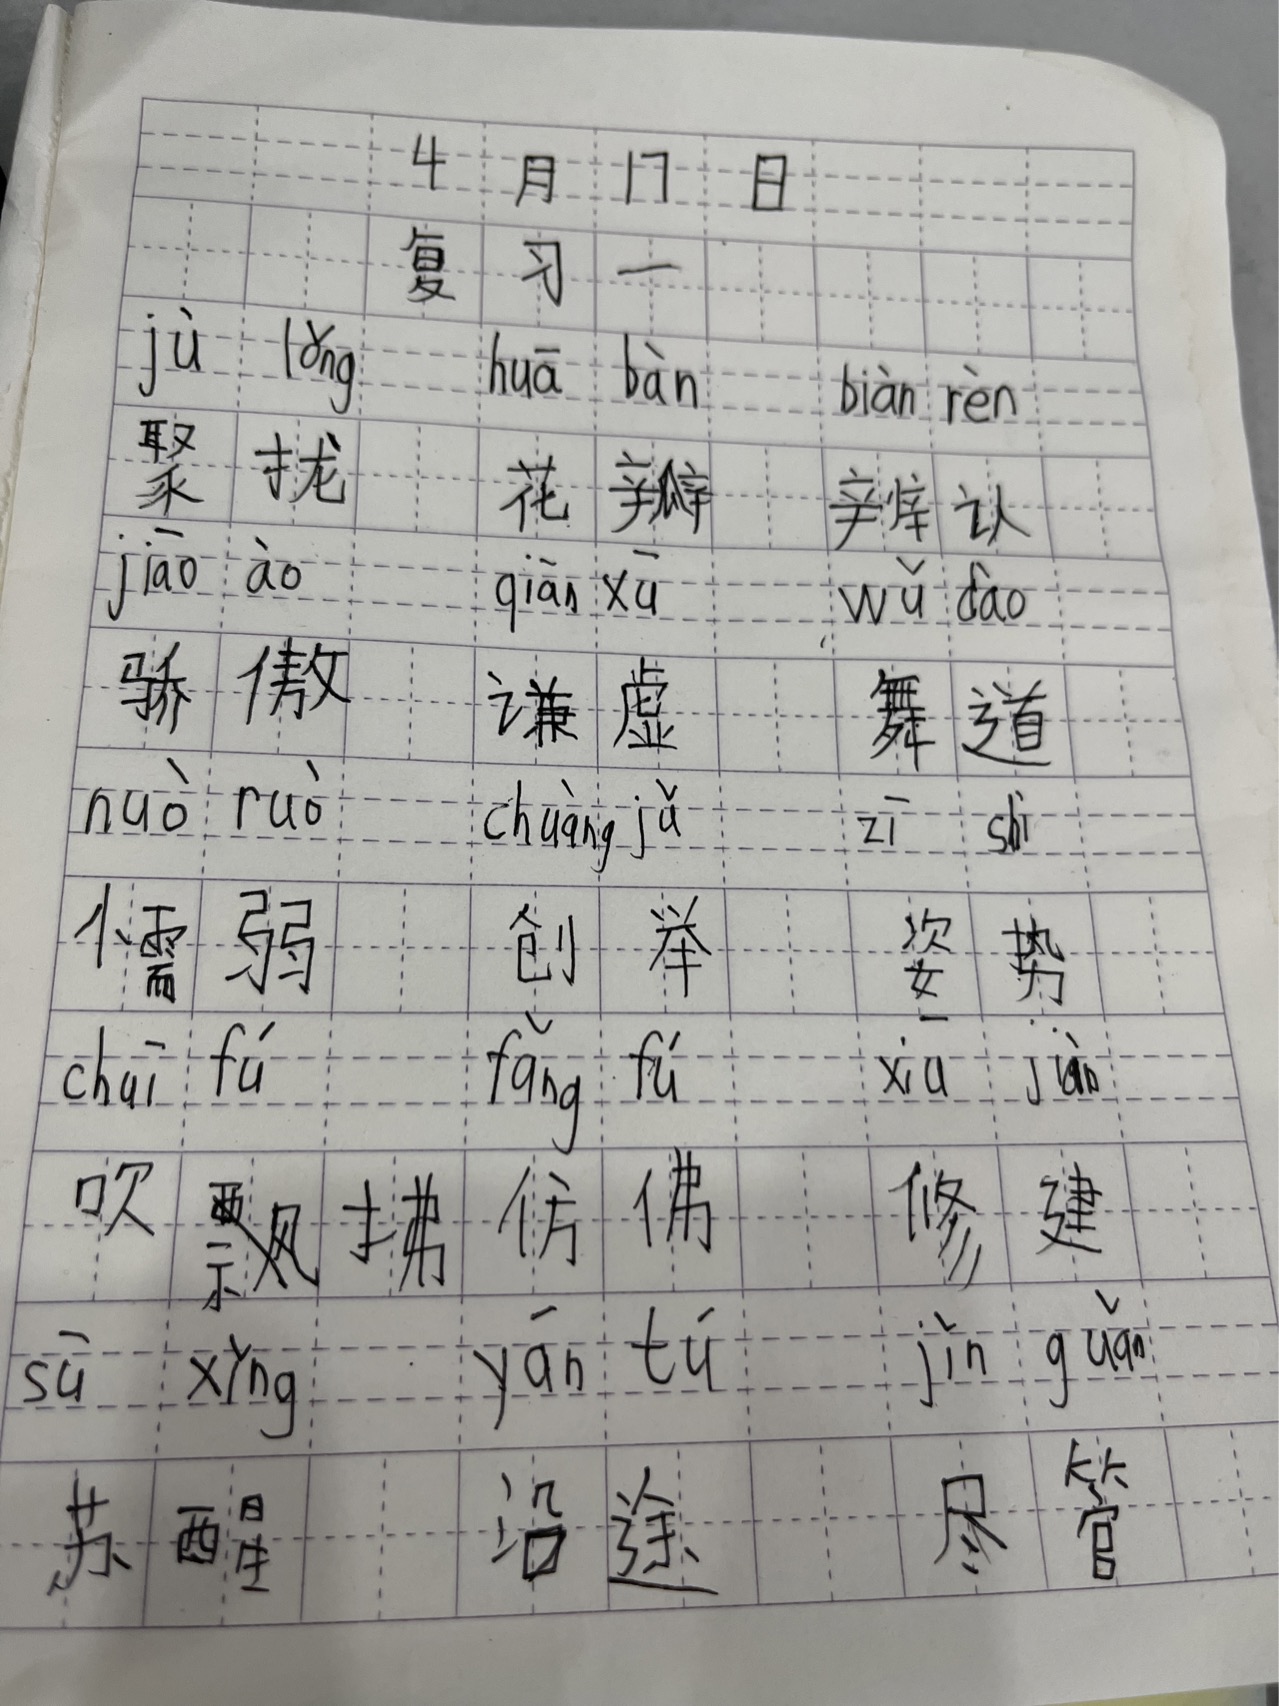 4月17日
复习一
jù lǒng huā bàn biàn rèn
聚拢 花瓣 辨认
jiāo ào qiān xū wǔ dào
骄傲 谦虚 舞道
nuò ruò chuàng jǔ zī shì
懦弱 创举 姿势
chuī fú fǎng fú xiū jiàn
吹飘拂 仿佛 修建
sū xǐng yán tú jǐn guǎn
苏醒 沿途 尽管